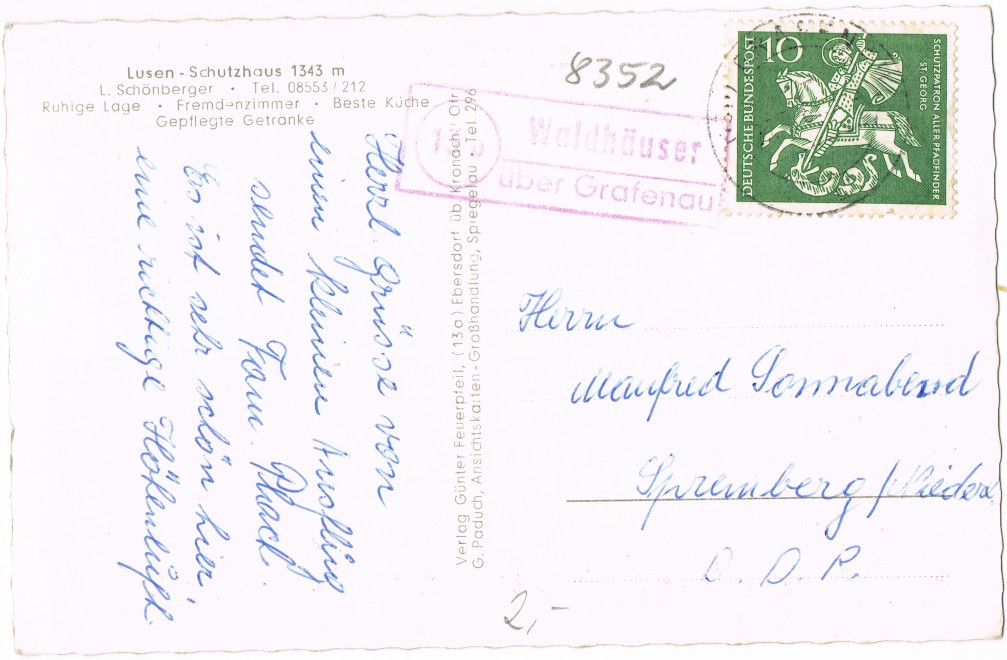 Lusen - Schutzhaus 1343 m
L. Schönberger • Tel. 08553/212
Ruhige Lage • Fremdenzimmer • Beste Küche
Gepflegte Getränke
Herzl. Grüsse von
einem kleinen Ausflug
sendet Fam.
Es ist sehr schön hier
eine richtige Höhenluft.
Verlag Günter Feuerpteil, (13a) Ebersdorf üb. Kronach Ofr.
G. Paduch, Ansichtskarten-Großhandlung, Spiegelau - Tel 296
8352
13b
Waldhäuser
über Grafenau
10
DEUTSCHE BUNDESPOST
SCHUTZPATRON ALLER PFADFINDER
ST. GEORG
Herrn
Manfred Sonnabend
Spremberg /Niederl
D. D. R.
2,-